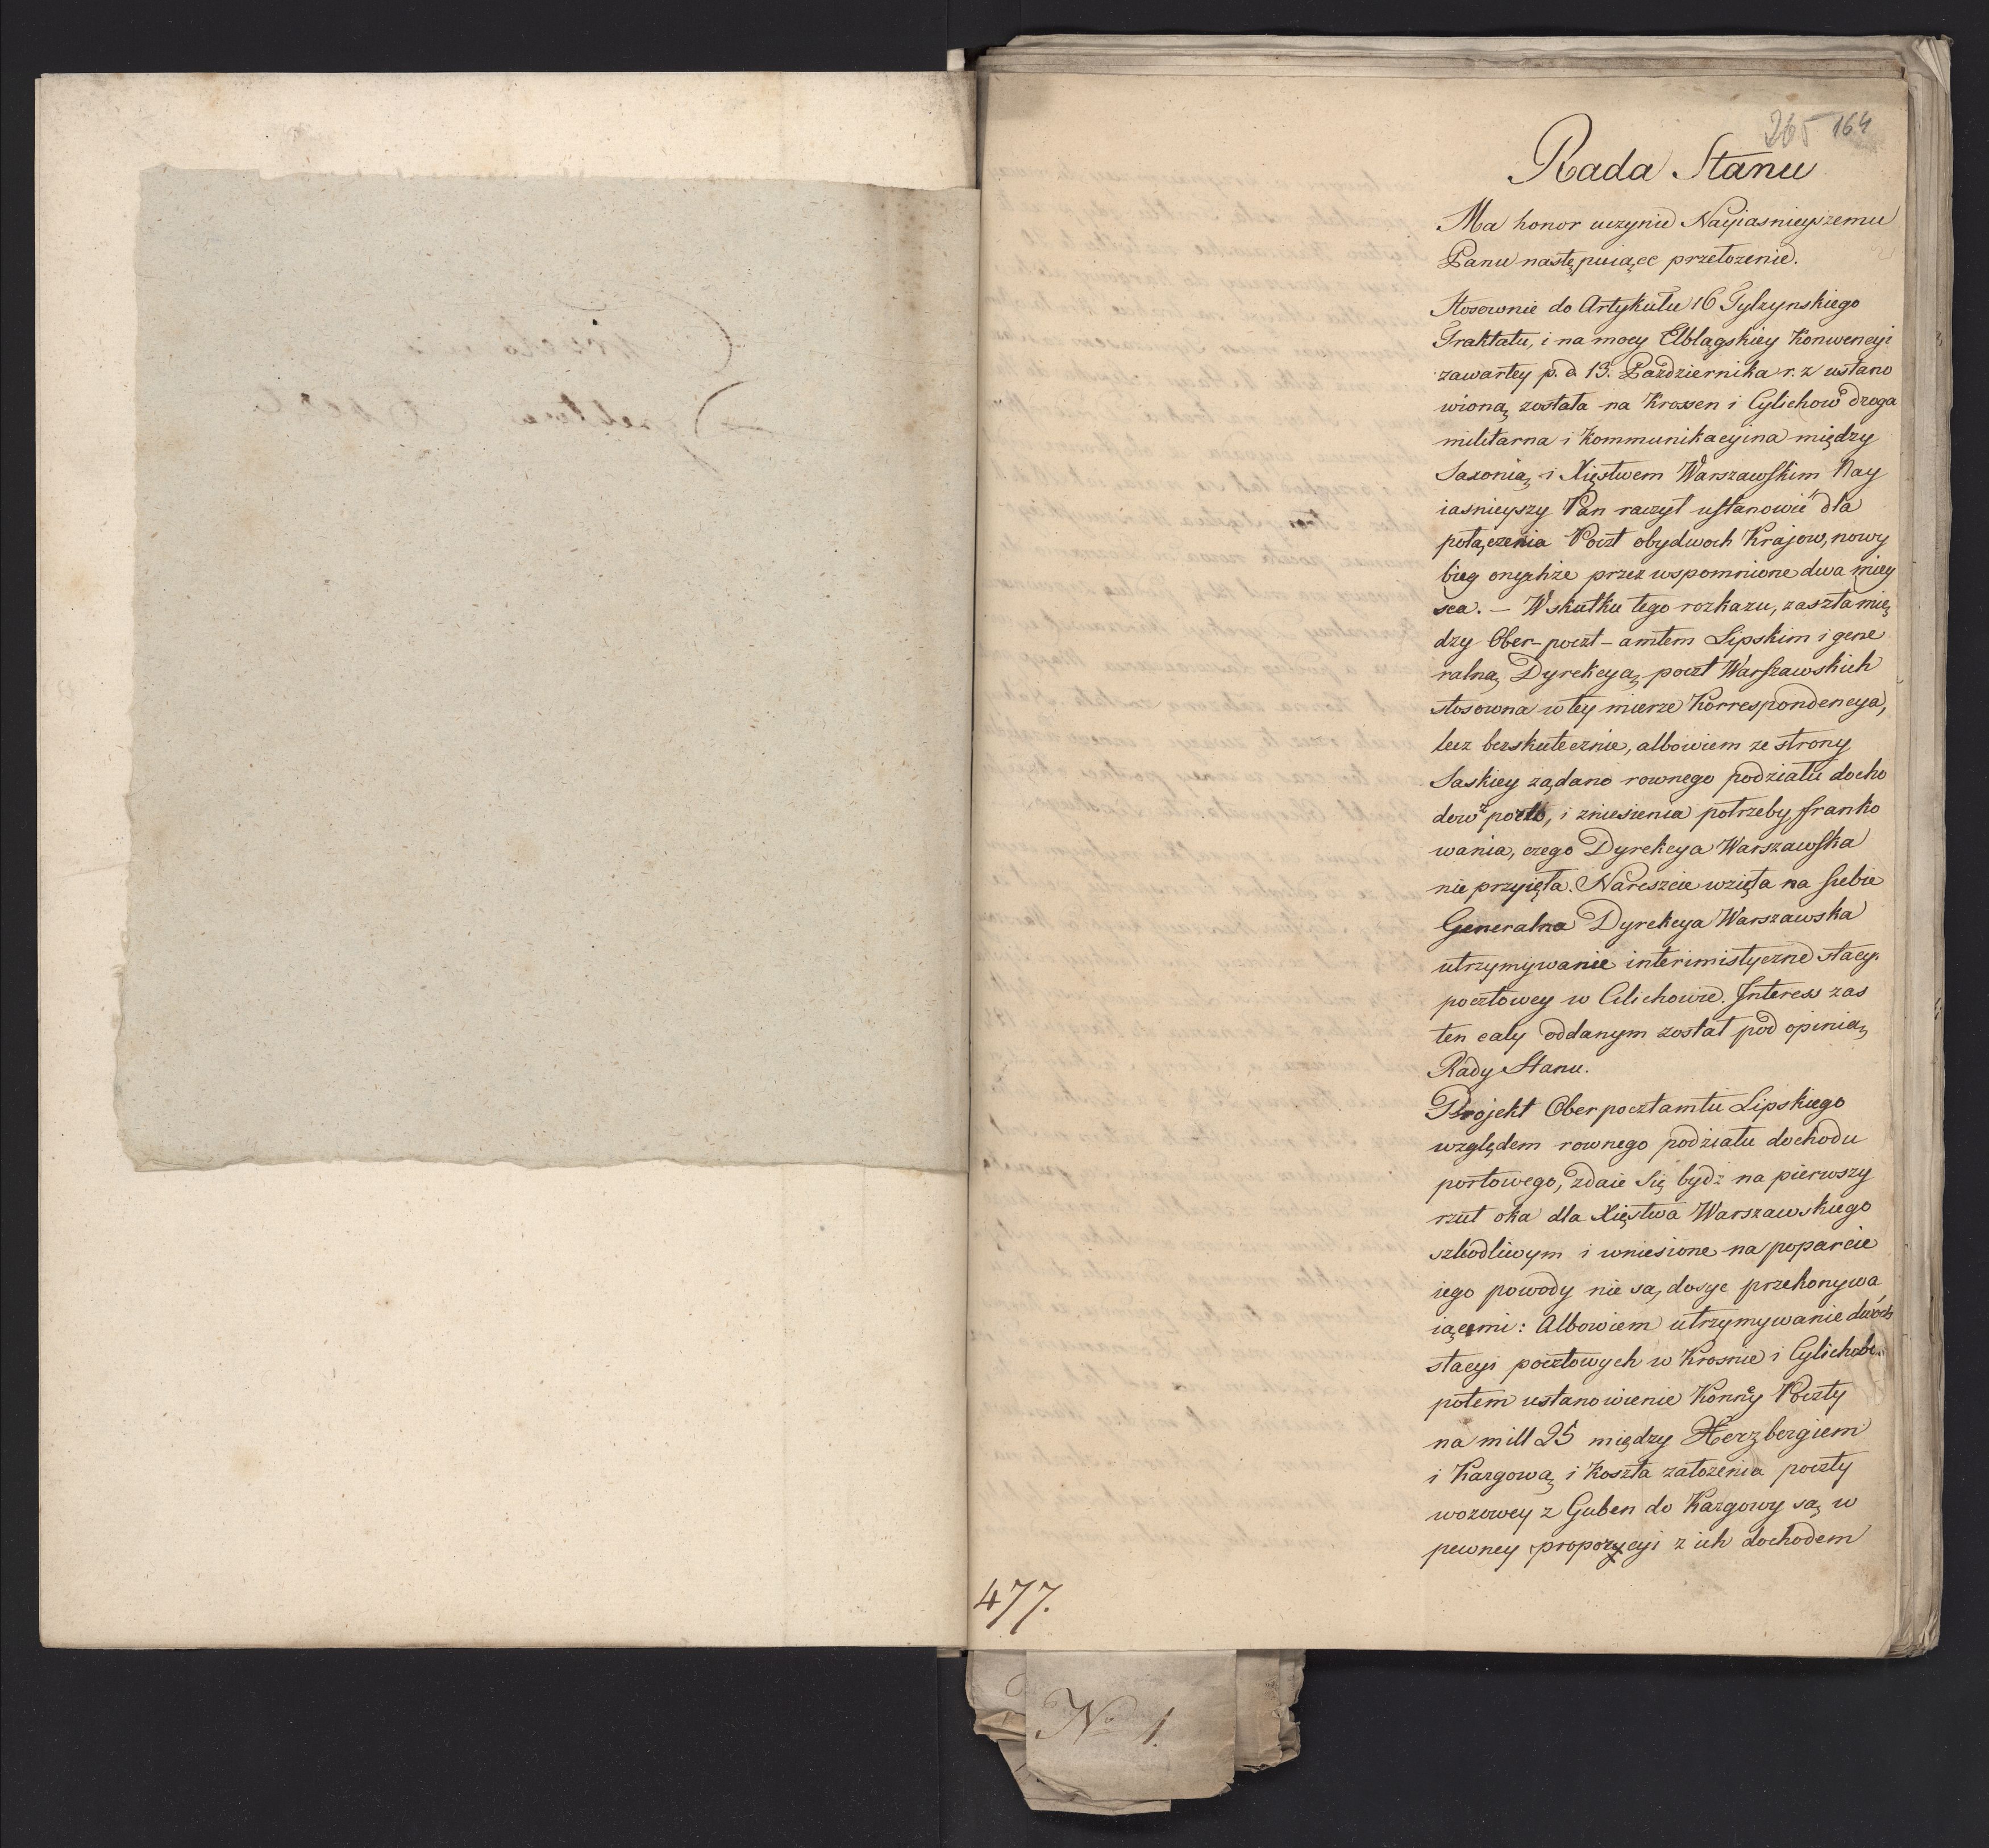 265 164
Rada Stanu
Ma honor uczynić Nayiasnieyszemu
Panu następuiące przełozenie.
Stosownie do Artykułu 16 Tylzynskiego
Traktatu, i na mocy Elblągskiey Konwencyi
zawartey p. d. 13. Października r. z ustano
wioną została na Krossen i Cylichow droga
militarna i Kommunikacyina między
Saxonią i Xięstwem Warszawskim Nay
iasnieyszy Pan raczył ustanowić dla
połączenia Poczt obydwoch Krajow, nowy
bieg onychże przez wspomnione dwa miey
sca. – W skutku tego rozkazu, zaszła mię
dzy Ober-poczt-amtem Lipskim i gene
ralną Dyrekcyą poczt Warszawskich
stosowna w tey mierze Korrespondencya,
lecz bezskutecznie, albowiem ze strony
Saskiey ządano rownego podziału docho
dow z porto, i zniesienia potrzeby franko
wania, czego Dyrekcya Warszawska
nie przyięła. Nareszcie wzięła na siebie
Generalna Dyrekcya Warszawska
utrzymywanie interimistyczne stacyi
pocztowey w Cilichowie. Interess zas
ten cały oddanym został pod opinią
Rady Stanu.
Projekt Ober pocztamtu Lipskiego
względem rownego podziału dochodu
portowego, zdaie się bydź na pierwszy
rzut oka dla Xięstwa Warszawskiego
szkodliwym i wniesione na poparcie
iego powody nie są dosyc przekonywa
iącemi: Albowiem utrzymywanie dwóch
stacyi pocztowych w Krosnie i Cylichowie
potem ustanowienie Konney Poczty
na mill 25 między Herzbergiem
i Kargową i Koszta załozenia poczty
wozowey z Guben do Kargowy są w
pewney proporcyi z ich dochodem
477.
No 1.